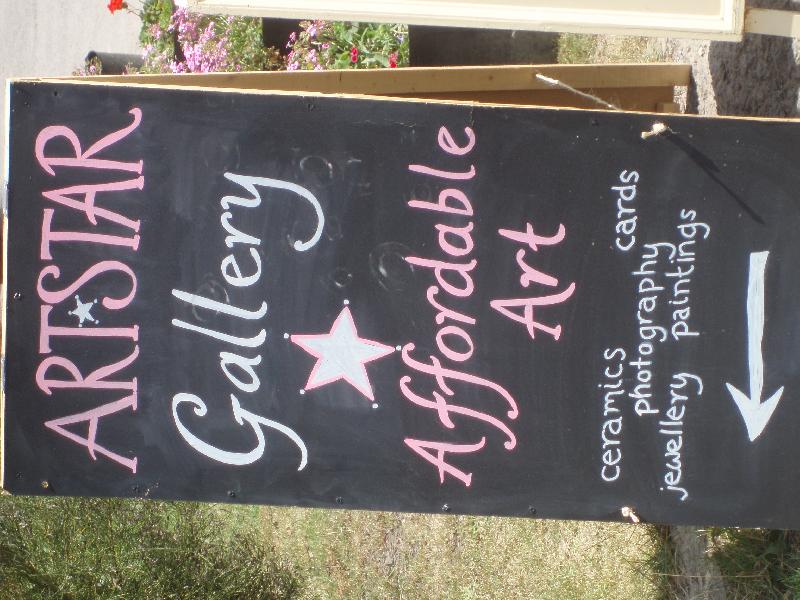 ARTSTAR
Gallery
Affordable
Art
ceramics cards
photography
jewellery paintings